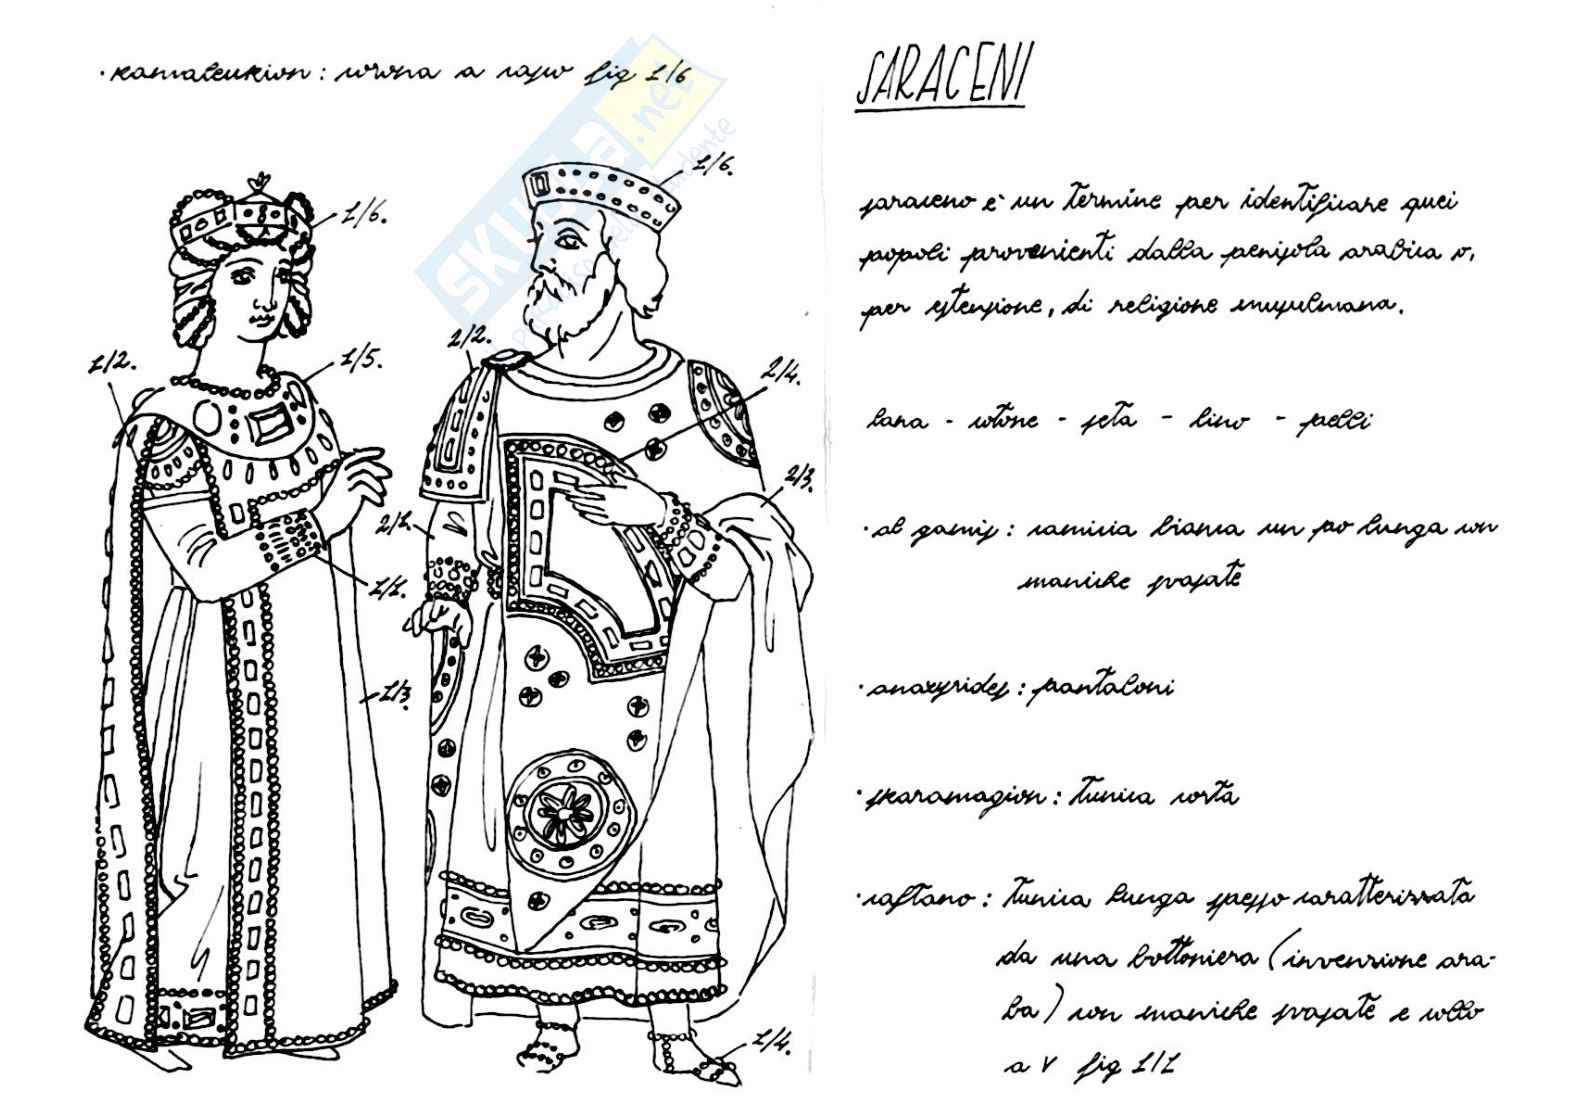 · kamaleukion : corona a capo fig 1/6
1/6.
1/6.
1/2.
1/5.
2/2.
2/4.
2/3.
2/1.
1/1.
1/3
1/4.
SKUOLA.net
SARACENI
saraceno è un termine per identificare quei
popoli provenienti dalla penisola arabica o,
per estensione, di religione musulmana.
lana - cotone - seta - lino - pelli
· al gamis : camicia bianca un po lunga con
maniche svasate
· anaxyrides : pantaloni
· skaramagion : tunica corta
· caftano : tunica lunga spesso caratterizzata
da una bottoniera (invenzione ara-
ba) con maniche svasate e collo
a V fig 1/1